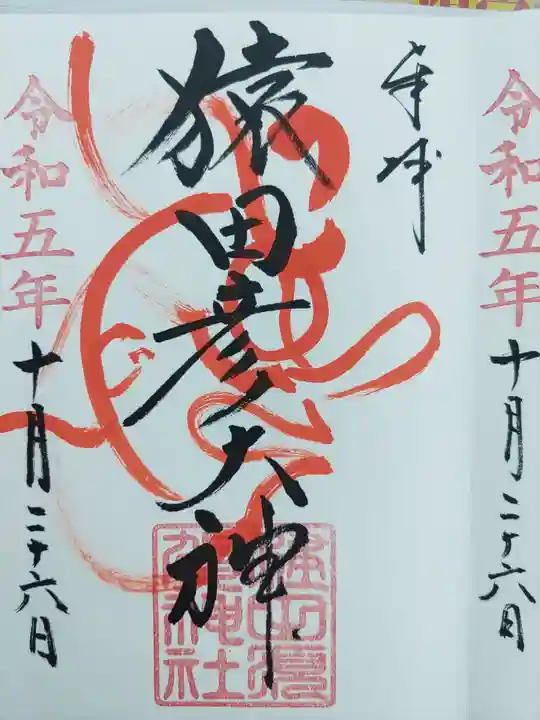 令和五年
十月二十六日
奉拝
猿田彦大神
令和五年
十月二十六日